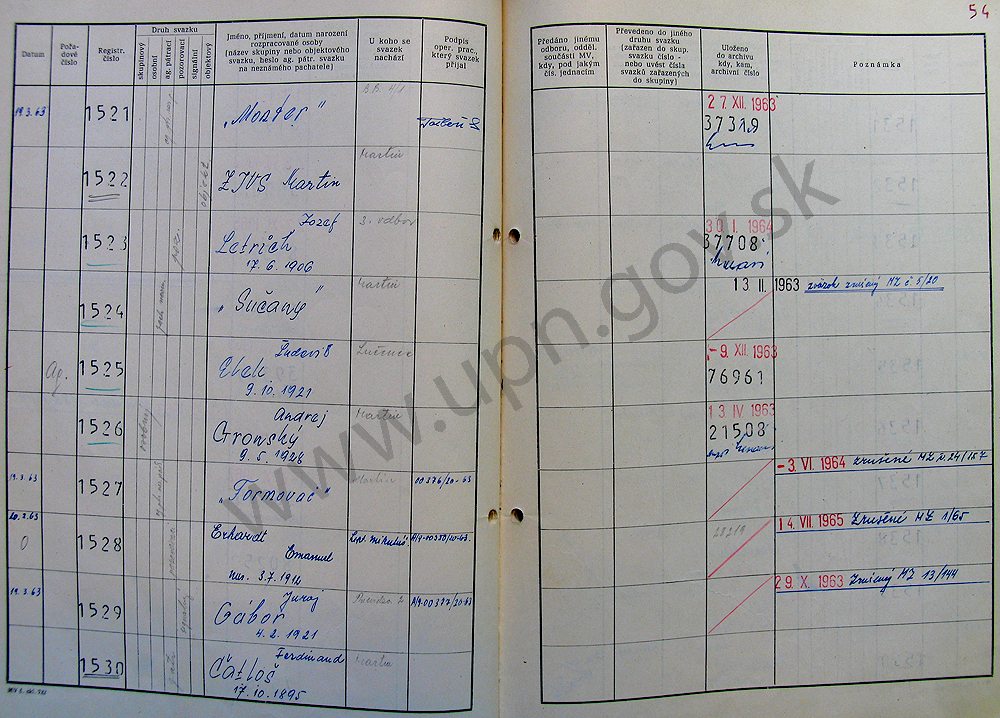 54
Datum
Pořa-
dové
číslo
Registr.
číslo
Druh svazku
skupinový
osobní
ag. pátrací
pozorovací
signální
objektový
Jméno, příjmení, datum narození
rozpracované osoby
(název skupiny nebo objektového
svazku, heslo ag. pátr. svazku
na neznámého pachatele)
U koho se
svazek
nachází
Podpis
oper. prac.,
který svazek
přijal
Předáno jinému
odboru, odděl.
součásti MV,
kdy, pod jakým
čís. jednacím
Převedeno do jiného
druhu svazku
(zařazen do skup.
svazku číslo -
nebo uvést čísla
svazků zařazených
do skupiny)
Uloženo
do archivu
kdy, kam,
archivní číslo
Poznámka
19.3.63
1521
B.B. 4/1
27. XII. 1963
37319
1522
objekt
ZJVS Martin
Martin
1523
poz.
Jozef
Letrich
17. 6. 1906
3. odbor
30. I. 1964
37708
1524
„Sučany"
Martin
13 II. 1963 zväzok zničený MZ č 5/20
Ag.
1525
Ľudovít
9. 10. 1921
Lučenec
- 9. XII. 1963
76961
1526
osobný
Andrej
Gronský
9. 5. 1926
Martin
13 IV 1963
21508
19.3.63
1527
„Formovač"
Martin
00376/20-63
- 3. VI. 1964 zrušené MZ č. 24/157
20.3.63
0
1528
Erhardt
Emanuel
nar. 3.7.1914
Lipt. Mikuláš
A/9-00380/20-63.
28219
14. VII. 1965 Zrušené MZ 1/65
19.3.63
1529
Juraj
Gábor
4. 2. 1921
Prievidza
A/9-00377/20-63
29. X. 1963 Zničený MZ 13/144
1530
Ferdinand
Čatloš
17. 10. 1895
Martin
www.upn.gov.sk